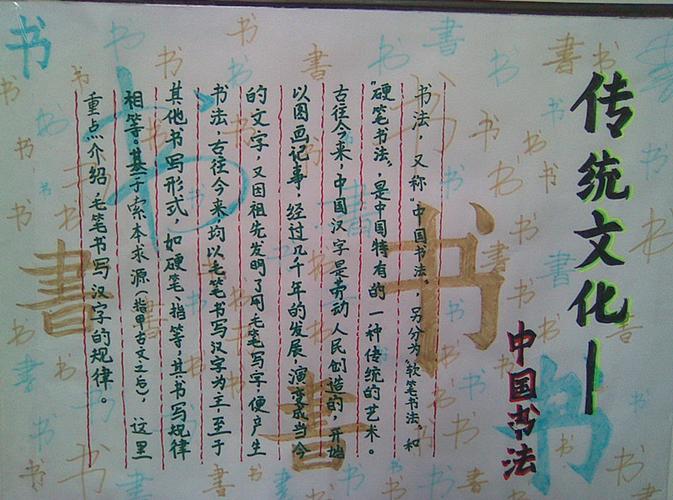 传统文化—
中国书法
书法，又称“中国书法”，另分为“软笔书法”和
“硬笔书法”，是中国特有的一种传统的艺术。
古往今来，中国汉字是劳动人民创造的，开始
以图画记事，经过几千年的发展，演变成当今
的文字，又因祖先发明了用毛笔写字，便产生
书法，古往今来，均以毛笔书写汉字为主，至于
其他书写形式，如硬笔、指等，其书写规律
相等。基于索本求源（指甲古文之后），这里
重点介绍毛笔书写汉字的规律。
书
書
書
书